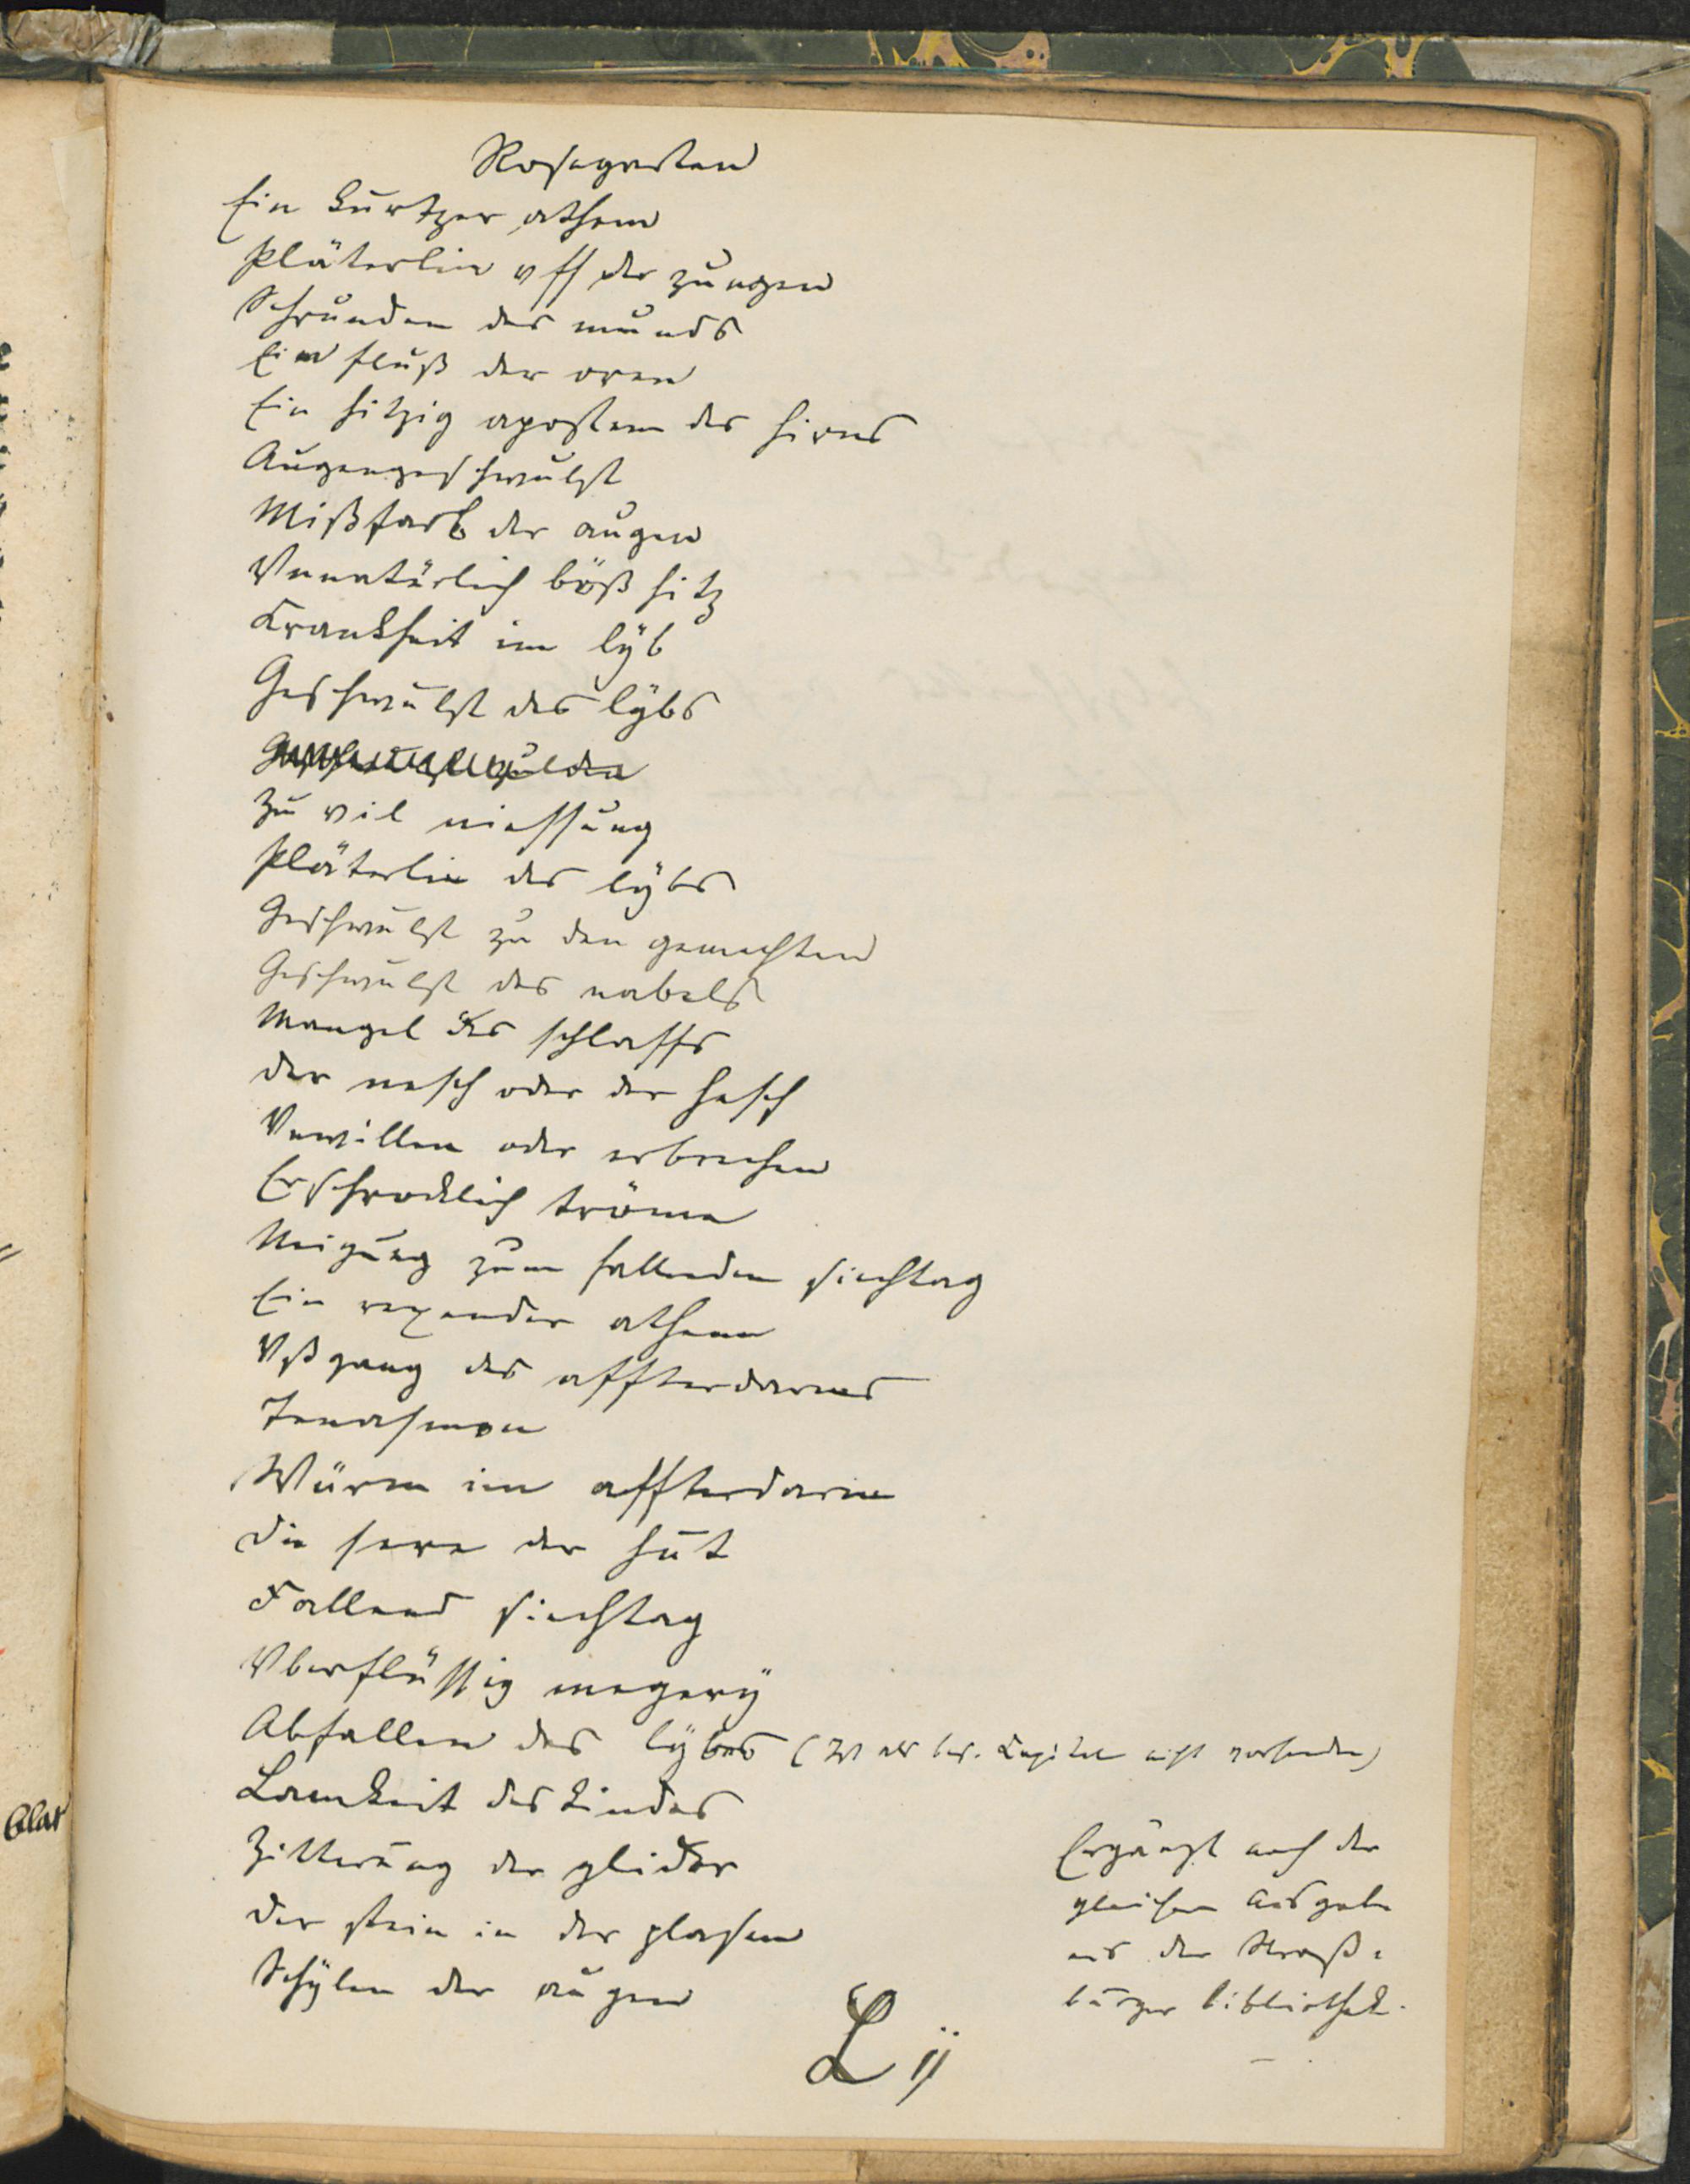 Rosegarten
Ein kurtzer athem
Pläterlin vff der zungen
Schrunden des munds
Ein fluß der oren
Ein hitzig apostem des hirns
Augengeschwulst
Mißfarb der augen
Vnnatürlich böß hitz
Krankheit im lyb
Geschwulst des lÿbs
Zu vil niessung
Pläterlin des lÿbs
Geschwulst zu den gemechten
Geschwulst des nabels
Mangel des schlaffs
der nesch oder der hesch
Vnwillen oder erbrechen
Erschrocklich tröme
Neigung zum fallenden siechtag
Ein rexender athem
Vßgang des affterdarms
Tenasmon
Würm im affterdarm
Die sere der hut
Fallend siechtag
Vberflüssig megerÿ
Abfallen des lÿbes (Ist als bes. Kapitel nicht vorhanden)
Lamkeit des kindes
Zitterung der glider
Der stein in der plasen
Schÿlen der augen
Ergänzt nach der
gleichen Ausgabe
aus der Straß-
burger Bibliothek.
L ij
Blat